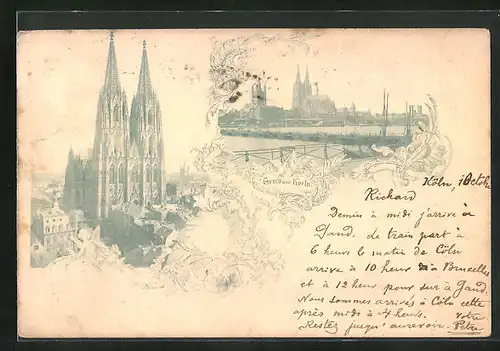 Gruss aus Koeln
Köln, 1 Octob
Richard
Demin à midi j'arrive à
Gand. de train part à
6 heurs le matin de Cöln
arrive à 10 heur à Bruxelles
et à 12 heur pour sur à Gand.
Nous sommes arrivés à Cöln cette
après midi à 4 heurs. votre
Restez jusqu' aurevoir.